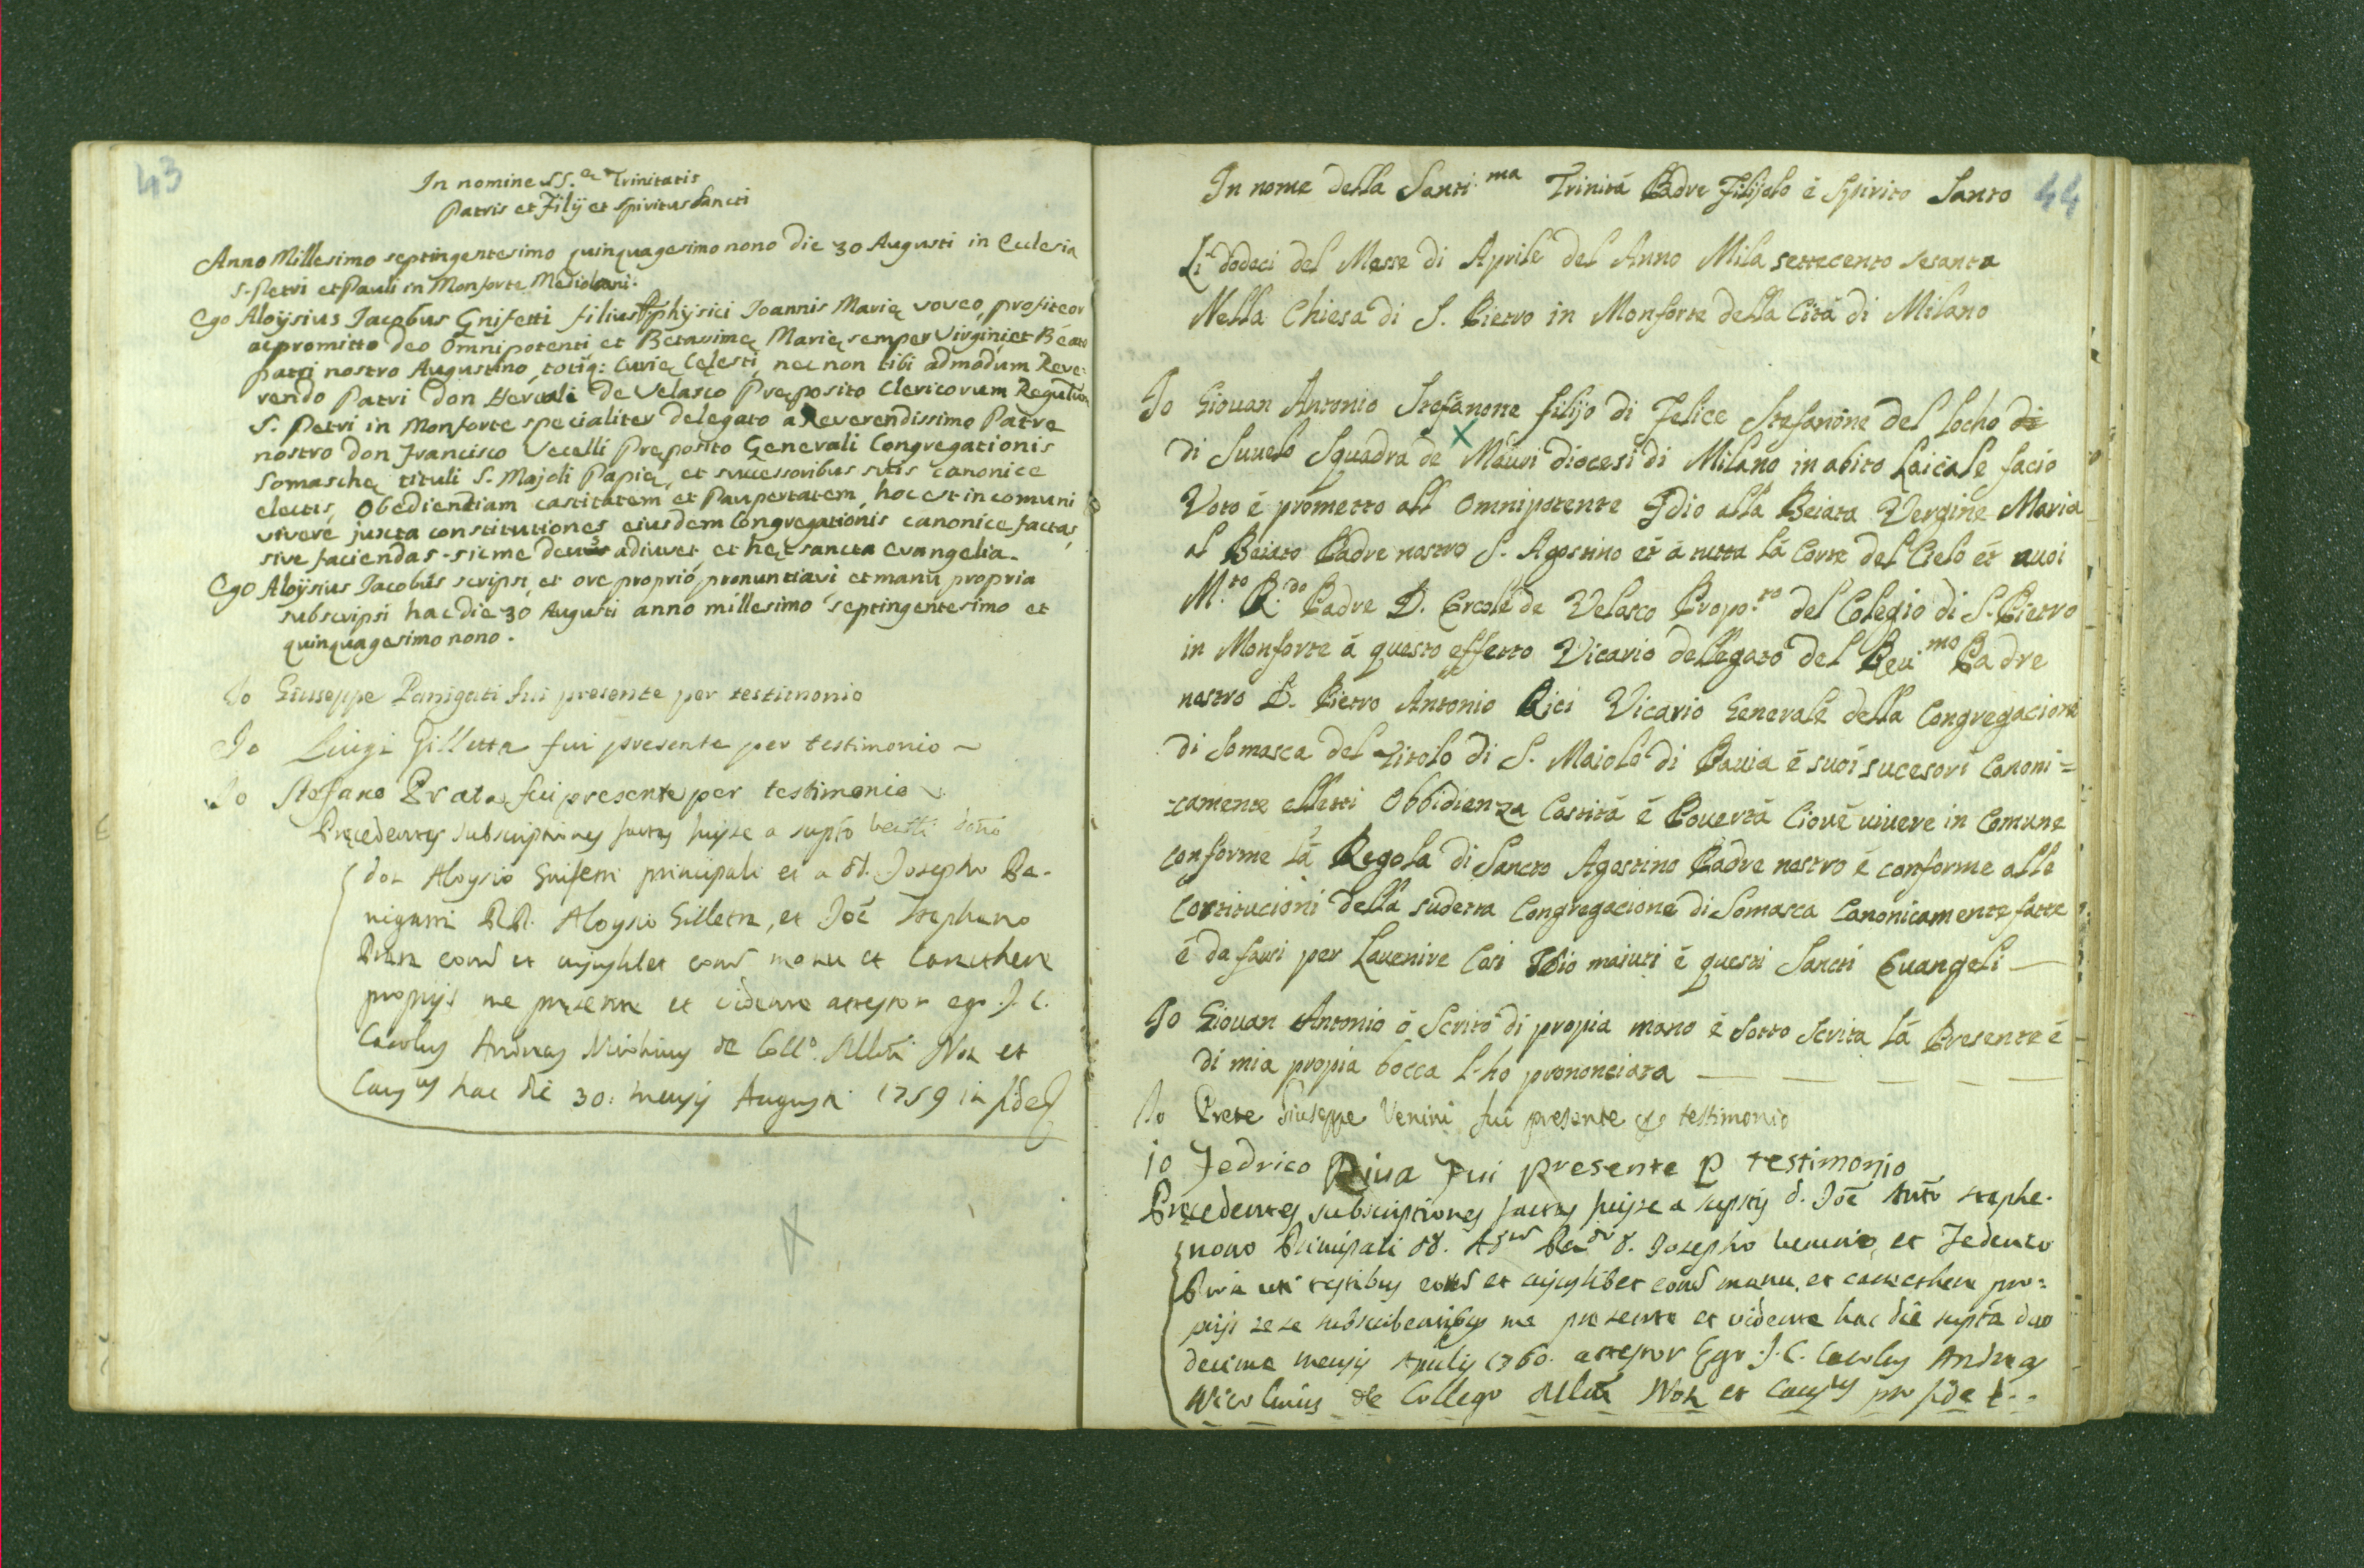 43
In nomine SS.æ Trinitatis
Patris et Filij et Spiritus Sancti
Anno Millesimo septingentesimo quinquagesimo nono die 30 Augusti in Eclesia
S. Petri et Pauli in Monforte Mediolani.
Ego Aloysius Jacobus Gnifetti filius physici Joannis Marię voveo, profiteor
ac promitto deo Omnipotenti et Betavimę Marię semper Virgini, et Beato
patri nostro Augustino, totiq: Curię Cęlesti, nec non tibi admodum Reve:
rendo Patri Don Herculi De Velasco Pręposito Clericorum Regularium
S. Petri in Monforte specialiter delegato a Reverendissimo Patre
nostro Don Francisco Vecelli Pręposito Generali Congregationis
Somaschę tituli S. Majoli Papię, et successoribus suis canonice
electis, Obedientiam castitatem et Paupertatem, hoc est in comuni
vivere juxta constitutiones eiusdem Congregationis canonice factas,
sive faciendas - sic me deus adiuvet, et hęc sancta evangelia.
Ego Aloysius Jacobus scripsi, et ore proprio, pronuntiavi et manu propria
subscripsi hac die 30 Augusti anno millesimo septingentesimo et
quinquagesimo nono.
Io Giuseppe Panigati fui presente per testimonio
Io Luigi Gilletta fui presente per testimonio
Io Stefano Prata fui presente per testimonio
Pręcedentes subscriptiones factas fuisse a supto
Aloysio Gnifetti principali et a dd. Josepho Pa-
nigatti Aloysio Gilletta, et Joē Stephano
Prata eorũd et cujuslibet eorũd manu et Carecthere
proprijs me presente et vidente attestor ego J. C.
Carolus Andreas de Collo. Mlni Not et
Caus.us hac die 30: mensis Augusti 1759 in fide
44
In nome della Santi.ma Trinità Padre Filijolo è Spirito Santo
Li dodeci del Messe di Aprile del Anno Mila settecento sesanta
Nella Chiesa di S. Pietro in Monforte della Cità di Milano
Io Giovan Antonio Stefanone filijo di Felice Stefanone del locho di
di Suvelo Squadra de Mauri diocesi di Milano in abito Laicale facio
Voto è prometto all Omnipotente Idio alla Beiata Vergine Maria
al Beiato Padre nostro S. Agostino et à tutta là Corte del Cielo et avoi
M.to R.do Padre D. Ercole de Velasco Propo.to del Colegio di S. Pietro
in Monforte à questo effetto Vicario dellegato del Reu.mo Padre
nostro D. Pietro Antonio Rici Vicario Generale della Congregacione
di Somasca del Titolo di S. Maiolo di Pauia è suoi sucesori Canoni=
-camente elletti Obbidienza Castità è Pouertà Cioué uiuere in Comune
conforme là Regola di Sancto Agostino Padre nostro è conforme alle
Costitucioni della sudetta Congregacione di Somasca Canonicamente fatte
è da farsi per Lauenire Così Idio maiuti è questi Sancti Euangeli
Io Giouan Antonio ò Scrito di propia mano è sotto scrita là Presente è
di mia propia bocca l-ho prononciata
Io Prete Giuseppe Venini fui presente per testimonio
io Fedrico Riua Fui presente p testimonio
Pręcedentes subscriptiones factas fuisse a suptis d. Joē Anto Stepha-
nono Principali dd. Josepho Venino, et Federico
Riva uti testibus eorũd et cujuslibet eorũd manu, et carecthere pro=
prijs sese subscribentibus me presente et vidente hac die supta duo
decima mensis Aprilis 1760. attestor Ego J. C. Carolus Andreas
de Collegio Mlni Not et Caus.us pro fide